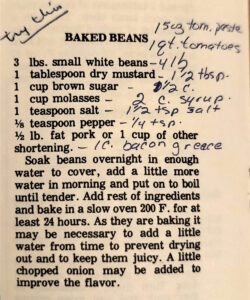 try this
15 oz tom. paste
1 qt. tomatoes
BAKED BEANS
3 lbs. small white beans - 4 lb
1 tablespoon dry mustard - 1 1/2 tbsp.
1 cup brown sugar - 1 1/2 c.
1 cup molasses - 2 c. syrup.
1 teaspoon salt - 1 1/2 tsp salt
⅛ teaspoon pepper - 1/4 tsp.
½ lb. fat pork or 1 cup of other
shortening. - 1 c. bacon grease
Soak beans overnight in enough
water to cover, add a little more
water in morning and put on to boil
until tender. Add rest of ingredients
and bake in a slow oven 200 F. for at
least 24 hours. As they are baking it
may be necessary to add a little
water from time to prevent drying
out and to keep them juicy. A little
chopped onion may be added to
improve the flavor.